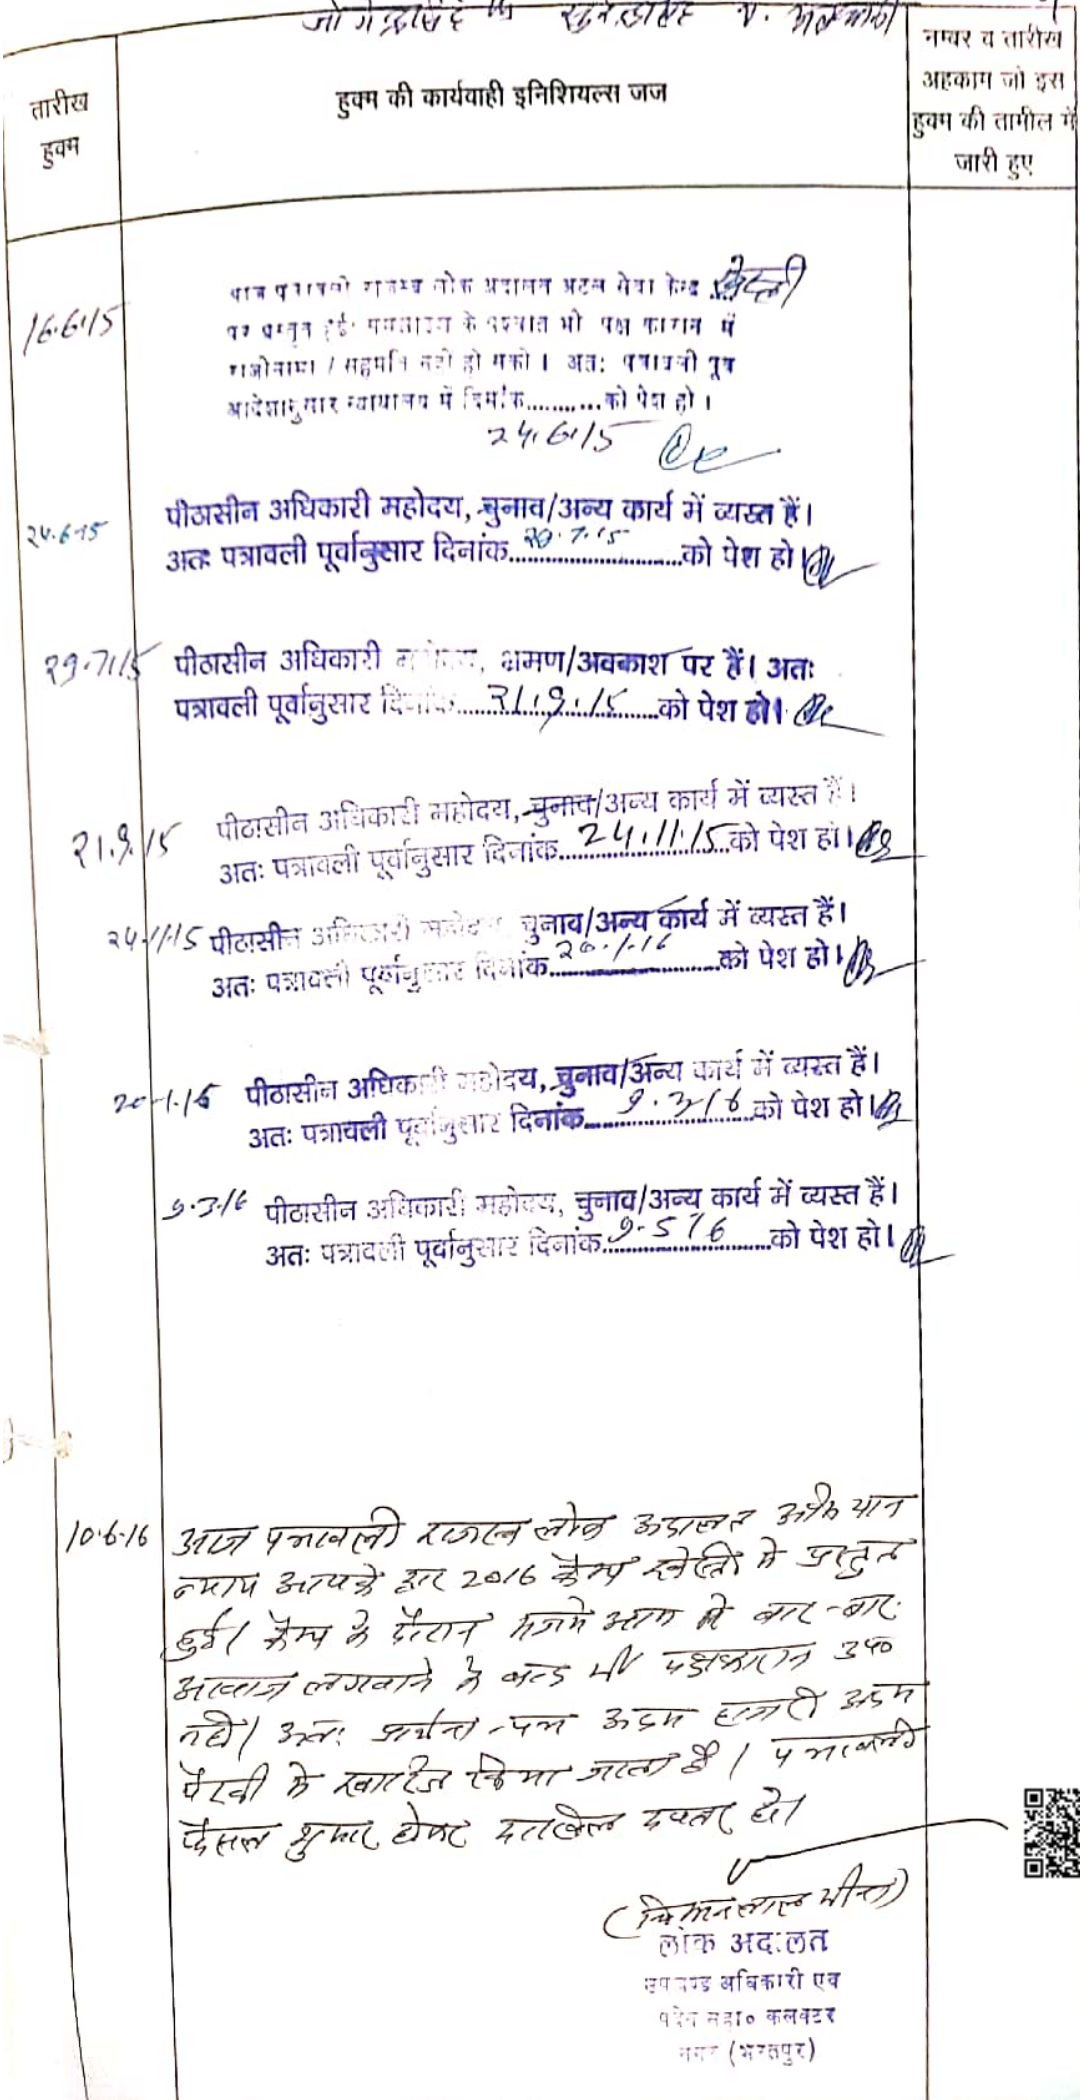 जोगेन्द्रसिंह v.
नम्बर व तारीख
अहकाम जो इस
हुक्म की तामील में
जारी हुए
हुक्म की कार्यवाही इनिशियल्स जज
तारीख
हुक्म
16.6.15
राजस्व लोक अदालत अटल सेवा केन्द्र
पर प्रस्तुत हुई। के पश्चात भी पक्ष कारान में
राजीनामा / सहमति नही हो सकी। अतः पत्रावली पूर्व
आदेशानुसार न्यायालय में दिनांक..........को पेश हो।
24.6.15
24.6.15
पीठासीन अधिकारी महोदय, चुनाव/अन्य कार्य में व्यस्त हैं।
अतः पत्रावली पूर्वानुसार दिनांक 29.7.15 को पेश हो।
29.7.15
पीठासीन अधिकारी महोदय, भ्रमण/अवकाश पर हैं। अतः
पत्रावली पूर्वानुसार दिनांक 21.9.15 को पेश हो।
21.9.15
पीठासीन अधिकारी महोदय, चुनाव/अन्य कार्य में व्यस्त हैं।
अतः पत्रावली पूर्वानुसार दिनांक 24.11.15 को पेश हो।
24.11.15
पीठासीन अधिकारी महोदय, चुनाव/अन्य कार्य में व्यस्त हैं।
अतः पत्रावली पूर्वानुसार दिनांक 20.1.16 को पेश हो।
20.1.16
पीठासीन अधिकारी महोदय, चुनाव/अन्य कार्य में व्यस्त हैं।
अतः पत्रावली पूर्वानुसार दिनांक 9.3.16 को पेश हो।
9.3.16
पीठासीन अधिकारी महोदय, चुनाव/अन्य कार्य में व्यस्त हैं।
अतः पत्रावली पूर्वानुसार दिनांक 9.5.16 को पेश हो।
10.6.16
आज पत्रावली राजस्व लोक अदालत अभियान
न्याय आपके द्वार 2016 कैम्प में प्रस्तुत
हुई। कैम्प के दौरान मजमे आम में बार-बार
आवाज लगवाने के बाद भी पक्षकारान उप०
नही। अतः प्रार्थना-पत्र अदम हाजरी अदम
पैरवी मे खारिज किया जाता है। पत्रावली
फैसल शुमार होकर दाखिल दफ्तर हो।
(चिमनलाल मीना)
लोक अदालत
उपखण्ड अधिकारी एवं
पदेन सहा० कलक्टर
नगर (भरतपुर)